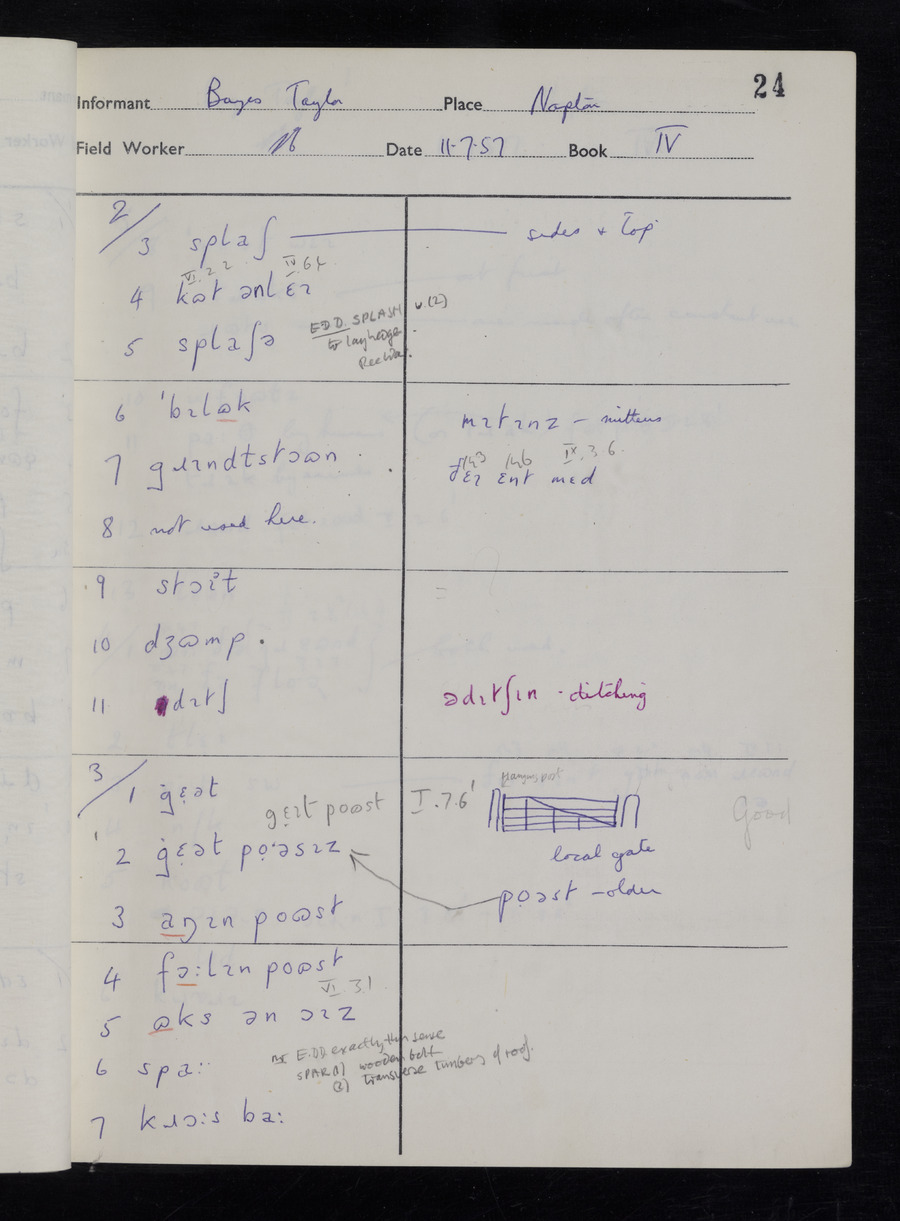 24
Informant Bayes Taylor Place Napton
Field Worker Date 11-7-57 Book IV
2/
3 splaʃ sides + top
VI.2.2 IV.6.4
4 kɷt ənl ɛɪ
5 splaʃə
EDD. SPLASH v.(2)
to lay hedges
6 ˈbɪlɷk mɪtɪnz – mittens
7 gɹɪndtstɔɷn
143 146 IX.3.6.
ðɛɪ ɛnt mɛd
8 not used here.
9 stɔɪt
10 dʒɷmp.
11 dɪtʃ ədɪtʃɪn - ditching
3/
1 gɛət
I.7.6
Hanging post
Good
gɛɪt poɷst
local gate
2 gɛət pọˑəsɪz
poəst – older
3 aŋɪn poɷst
4 fɔːlɪn poɷst
VI.3.1
5 ɷks ən ɔɪz
EDD exactly this sense
SPAR (1) wooden bolt
(2) transverse timbers of roof.
6 spaː
7 kɹɔːs baː